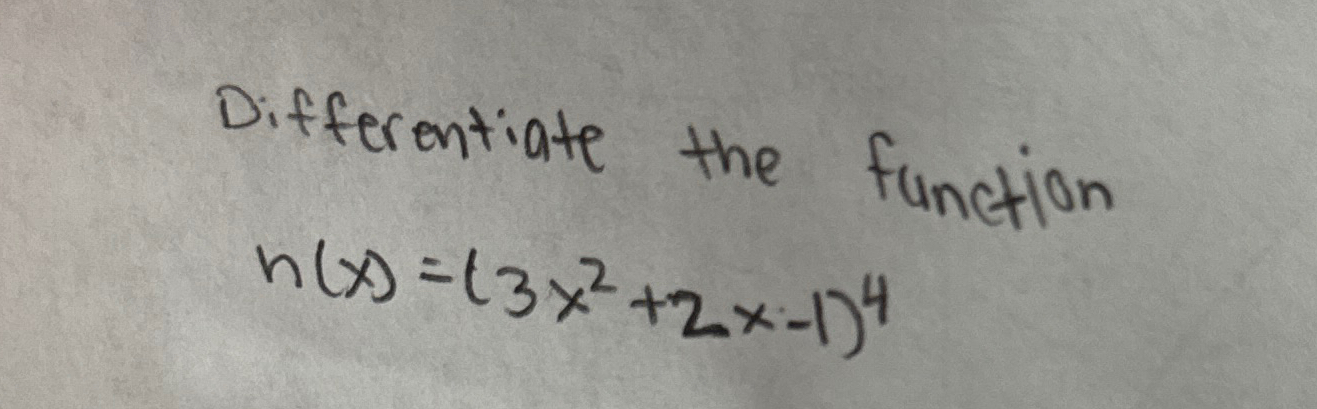 Differentiate the function
h(x) = (3x² + 2x - 1)⁴